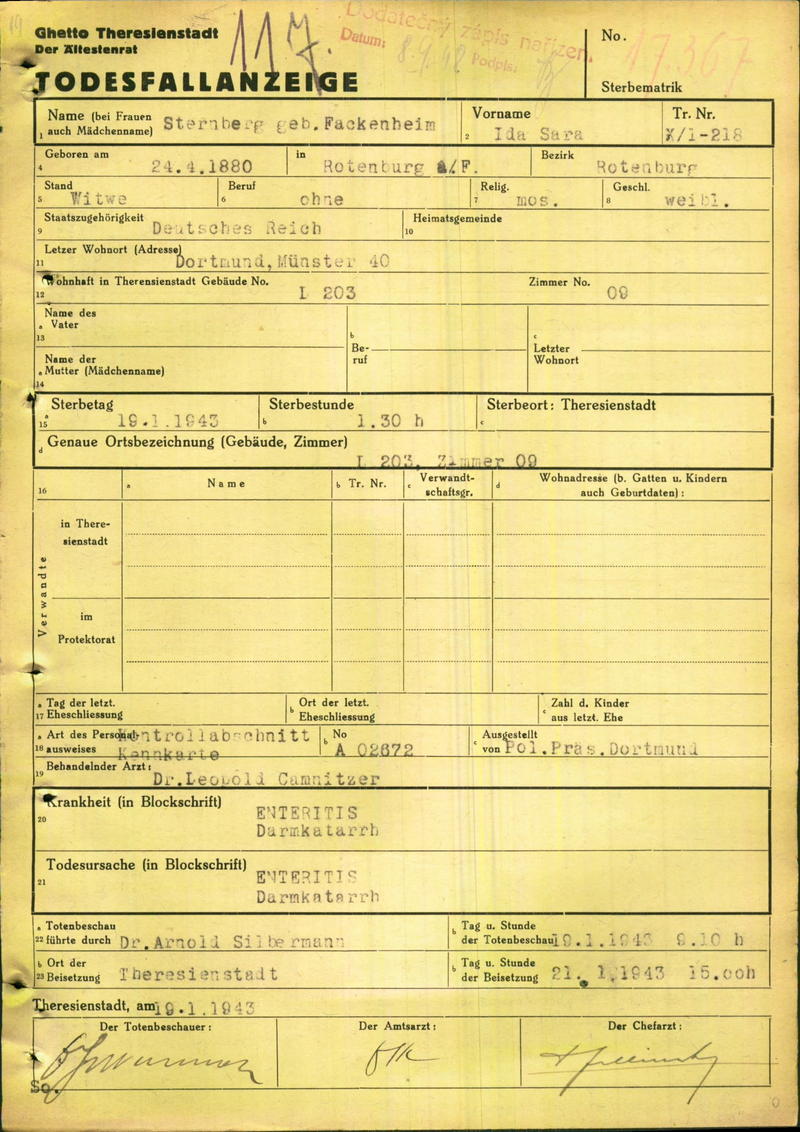 Ghetto Theresienstadt
Der Ältestenrat
TODESFALLANZEIGE
117.
Dodatečný zápis nařízen.
Datum: 8/9.48 Podpis:
No. 17.367
Sterbematrik
Name (bei Frauen auch Mädchenname) Sternberg geb.Fackenheim
1
Vorname
2 Ida Sara
Tr. Nr.
X/1-218
Geboren am
4 24.4.1880
in
Rotenburg a/F.
Bezirk
Rotenburg
Stand
5 Witwe
Beruf
6 ohne
Relig.
7 mos.
Geschl.
8 weibl.
Staatszugehörigkeit
9 Deutsches Reich
Heimatsgemeinde
10
Letzer Wohnort (Adresse)
11 Dortmund,Münster 40
Wohnhaft in Therensienstadt Gebäude No.
12 L 203
Zimmer No.
09
Name des
a Vater
13
b
Be-
ruf
c
Letzter
Wohnort
Name der
a Mutter (Mädchenname)
14
Sterbetag
15 a 19.1.1943
Sterbestunde
b 1.30 h
Sterbeort: Theresienstadt
c
d Genaue Ortsbezeichnung (Gebäude, Zimmer)
L 203, Zimmer 09
16
a Name
b Tr. Nr.
c Verwandt-
schaftsgr.
d Wohnadresse (b. Gatten u. Kindern
auch Geburtdaten) :
Verwandte
in There-
sienstadt
im
Protektorat
a Tag der letzt.
17 Eheschliessung
b Ort der letzt.
Eheschliessung
c Zahl d. Kinder
aus letzt. Ehe
a Art des Personal-
18 ausweises
Kontrollabschnitt
Kennkarte
b No
A 02672
c Ausgestellt
von Pol.Präs.Dortmund
Behandelnder Arzt:
19 Dr.Leopold Camnitzer
Krankheit (in Blockschrift)
20 ENTERITIS
Darmkatarrh
Todesursache (in Blockschrift)
21 ENTERITIS
Darmkatarrh
a Totenbeschau
22 führte durch Dr.Arnold Silbermann
b Tag u. Stunde
der Totenbeschau 19.1.1943 9.10 h
b Ort der
23 Beisetzung Theresienstadt
b Tag u. Stunde
der Beisetzung 21. 1.1943 15.ooh
Theresienstadt, am 19.1.1943
Der Totenbeschauer :
Der Amtsarzt :
Der Chefarzt :
So.